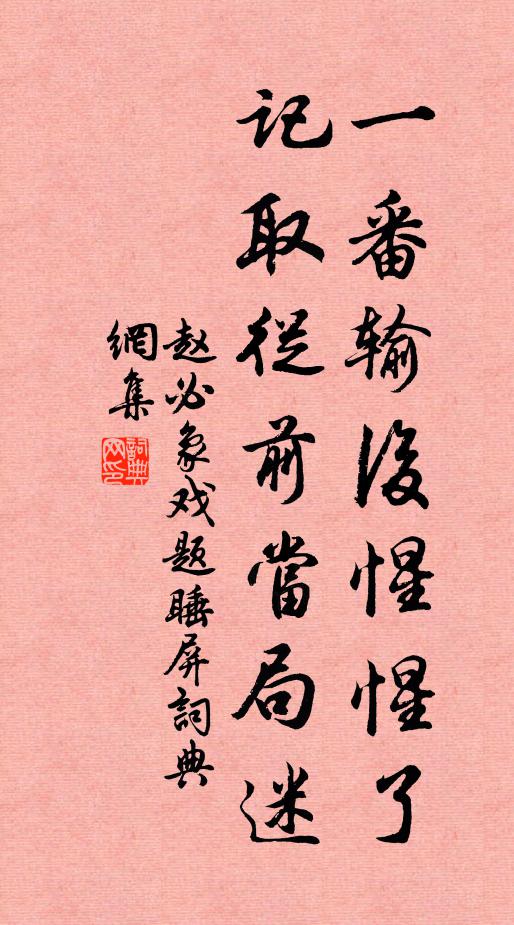 一番输後惺惺了
记取從前當局迷
赵必象戏题睡屏詞典
網集
詞典网印